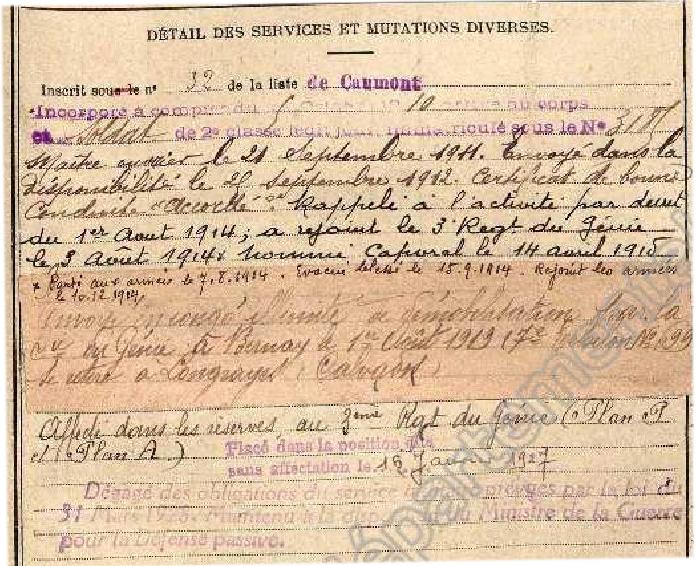 DÉTAIL DES SERVICES ET MUTATIONS DIVERSES.
Inscrit sous le n° 32 de la liste de Caumont
Incorporé à compter du 10 au corps
Soldat de 2e classe sous le N° 
Maître ouvrier le 21 Septembre 1911. Envoyé dans la
disponibilité le 25 Septembre 1912. Certificat de bonne
Conduite "Accordé". Rappelé à l'activité par décret
du 1er Aout 1914; a rejoint le 3e Regt du Génie
le 3 Aout 1914 x nommé Caporal le 14 avril 1915
x Parti aux armées le 7.8.1914. Evacué blessé le 15.9.1914. Rejoint les armées
le 10.12.1914
Envoyé en congé illimité de démobilisation par le
du Génie à Bernay le 1er Août 1919
se retire à Longraye Calvados
Affecté dans les réserves au 3ème Rgt du Génie (Plan P
et (Plan A)
Placé dans la position dite
sans affectation le 15 Janvier 1927
Dégagé des obligations du service par la loi du
31 Mars Maintenu à la du Ministre de la Guerre
pour la Défense passive.